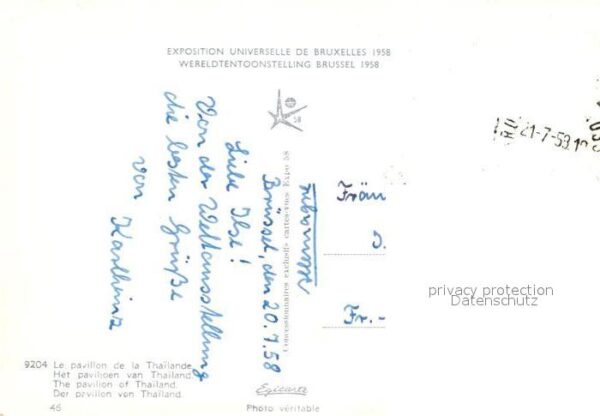 EXPOSITION UNIVERSELLE DE BRUXELLES 1958
WERELDTENTOONSTELLING BRUSSEL 1958
58
Brüssel, den 20.7.58
Liebe Ilse!
Von der Weltausstellung
die besten Grüße
von Karlheinz
Concessionnaires exclusifs cartes-vues Expo 58
21-7-58
Fräu
J.
Fr.-
privacy protection
Datenschutz
9204 Le pavillon de la Thaïlande.
Het paviljoen van Thailand.
The pavilion of Thailand.
Der pavillon von Thailand.
46
Egicarte
Photo véritable